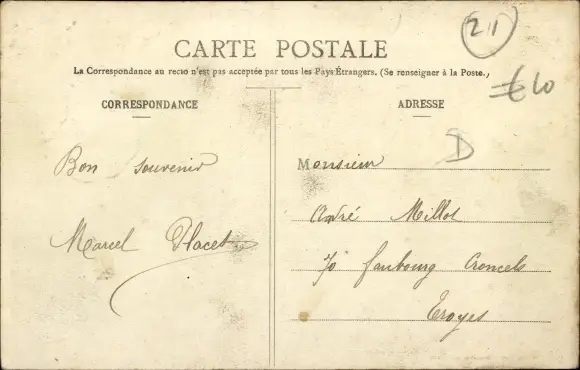 211
CARTE POSTALE
La Correspondance au recto n'est pas acceptée par tous les Pays Étrangers. (Se renseigner à la Poste.)
€10
CORRESPONDANCE
ADRESSE
D
Bon souvenir
Marcel Placet
Monsieur
André Millot
70 faubourg Croncels
Troyes